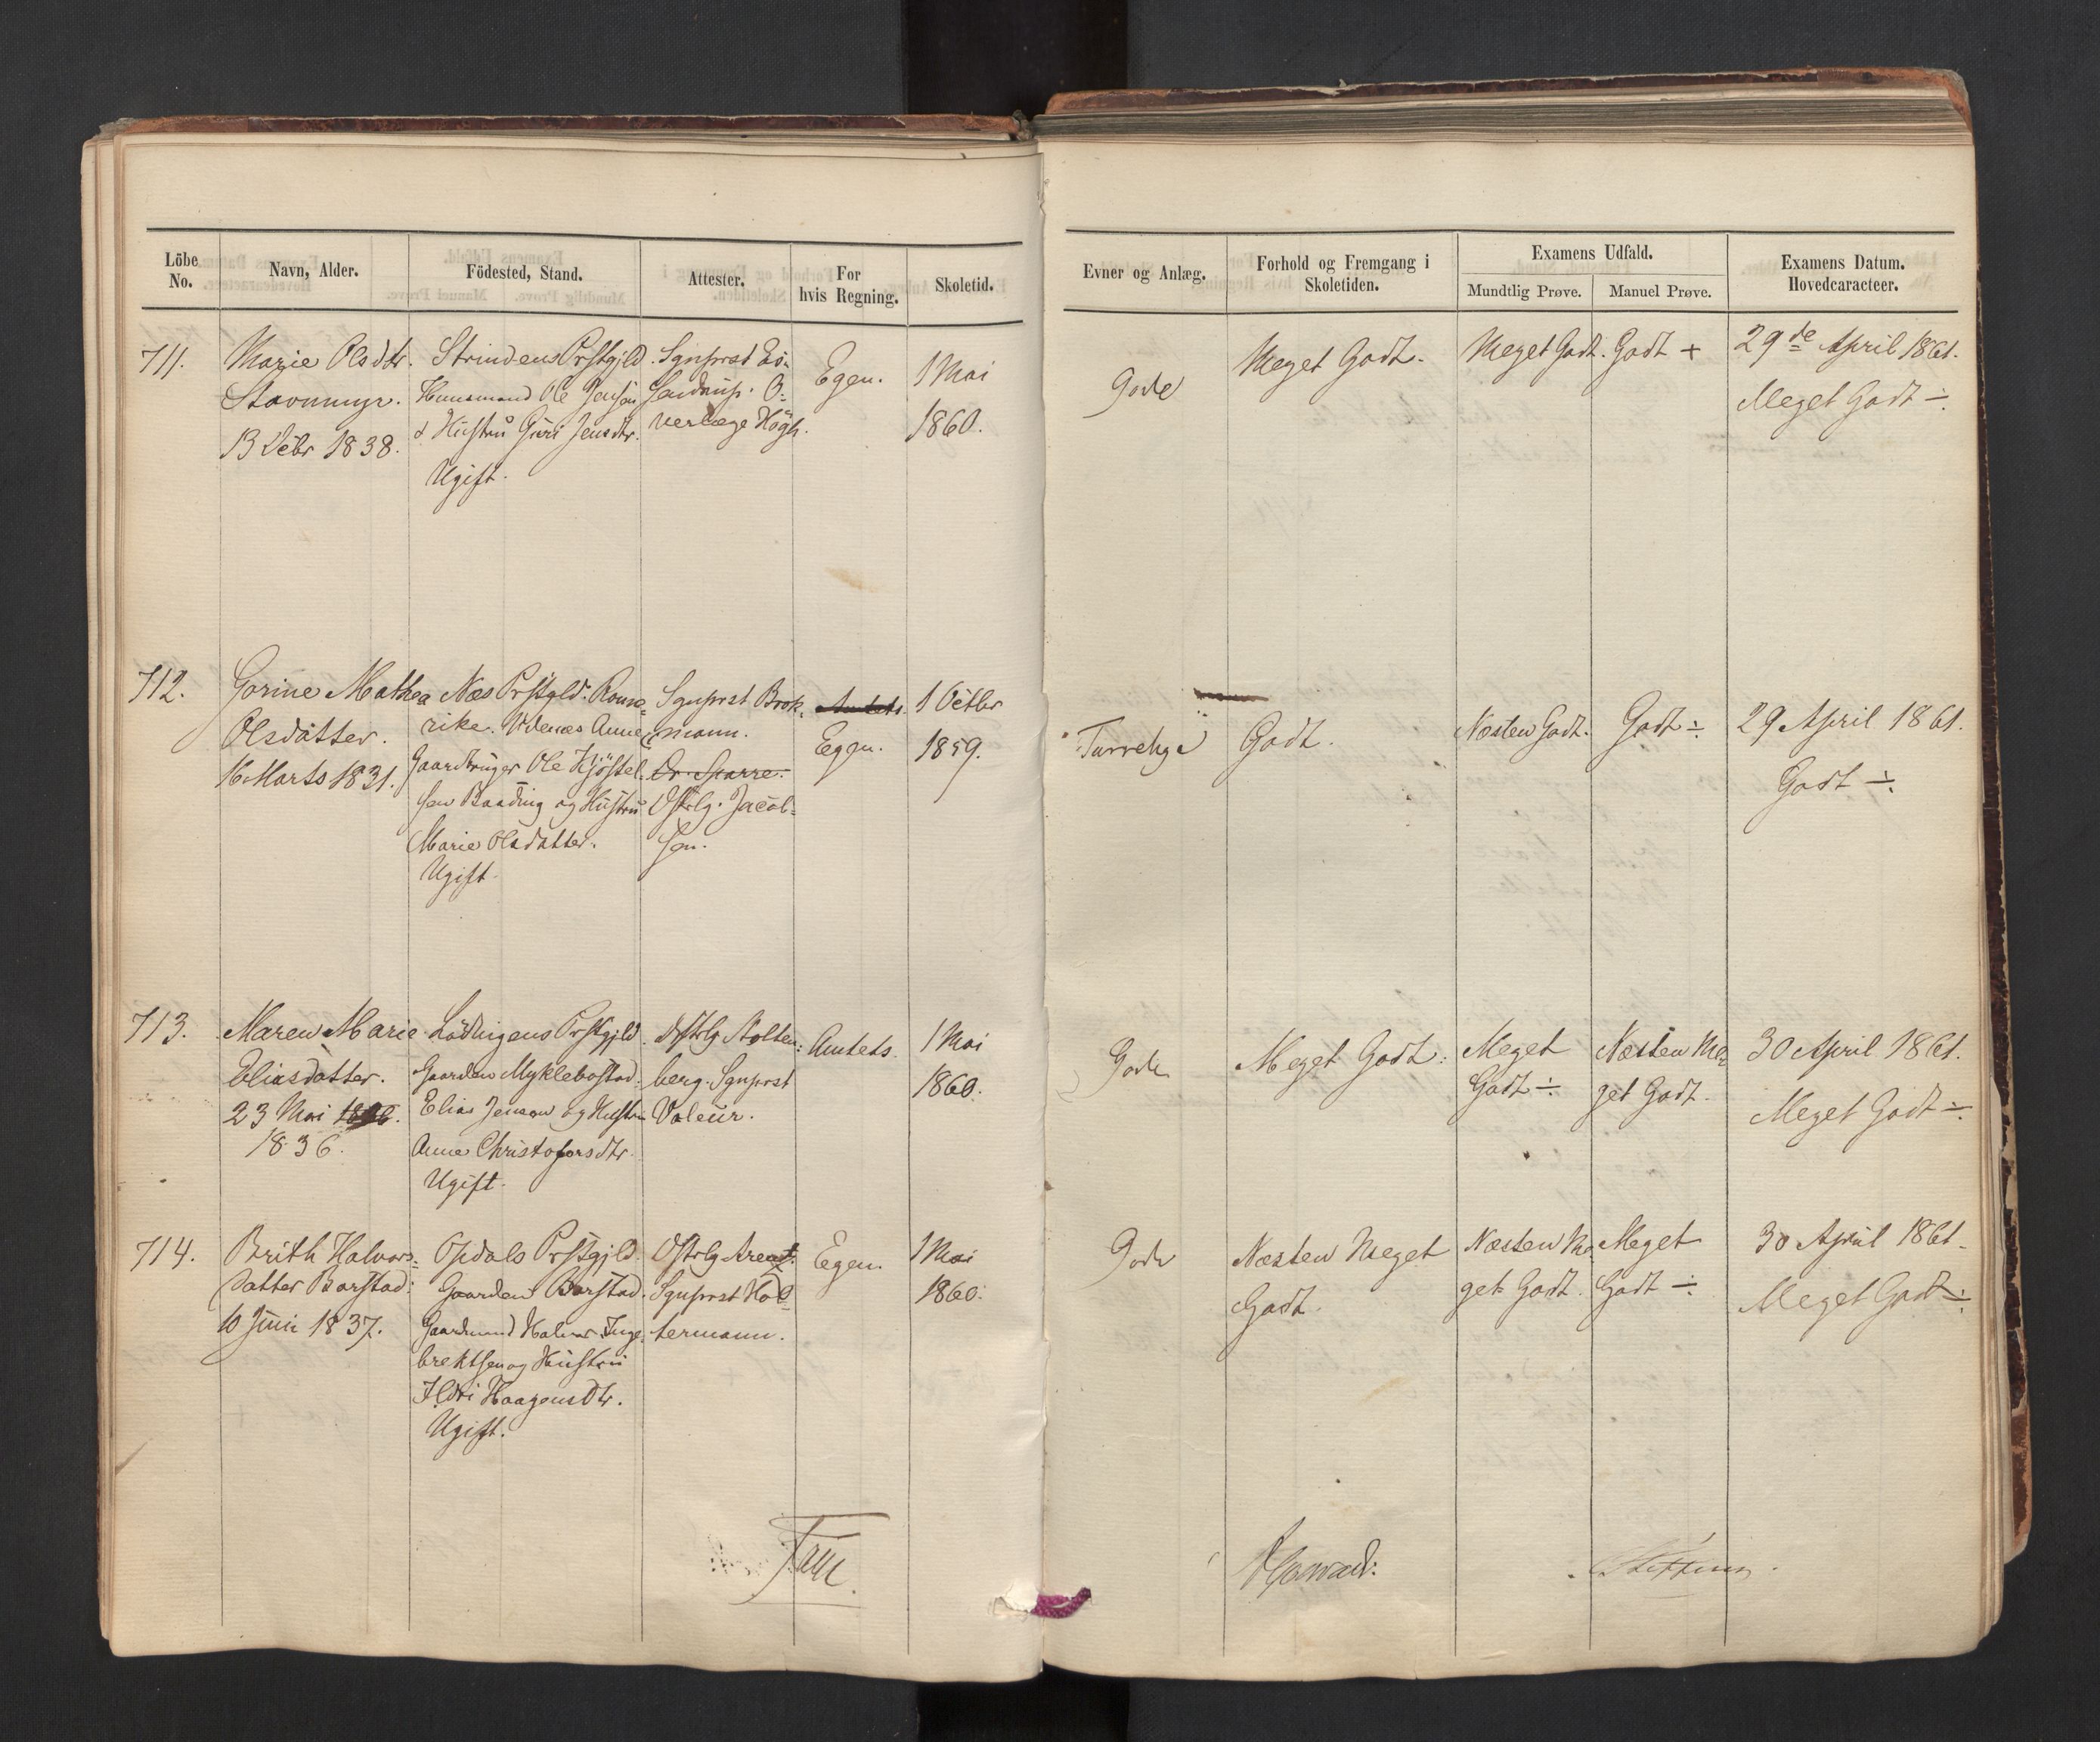 Löbe No.
Navn, Alder.
Födested, Stand.
Attester.
For hvis Regning.
Skoletid.
Evner og Anlæg.
Forhold og Fremgang i Skoletiden.
Examens Udfald.
Mundtlig Prøve.
Manuel Prøve.
Examens Datum.
Hovedcaracteer.
711.
Marie Olsdtr.
Stavnmyr.
13 Debr 1838.
Strindens Prstgjld
Huusmand Ole Jensen
& Hustru Guri Jensdtr.
Ugift.
Sgnprst Es-
sendrup. O-
verlæge Högh.
Egen.
1 Mai
1860.
Gode
Meget Godt.
Meget Godt.
Godt +
29de April 1861.
Meget Godt ÷.
712.
Gorine Mathea
Olsdatter.
16 Marts 1831.
Næs Prstgld. Rome-
rike. Udenæs Annex
Gaardbruger Ole Kjöstel-
sen Baading og Hustru
Marie Olsdatter.
Ugift.
Sgnprst Brok-
mann.
Dr. Sparre.
Dstrlg. Jacob-
sen.
Amtets.
Egen.
1 Octbr
1859.
Tarvelige
Godt.
Næsten Godt.
Godt ÷
29 April 1861.
Godt ÷.
713.
Maren Marie
Eliasdatter.
23 Mai
1836.
Lödingens Prstgjld.
Gaarden Myklebostad.
Elias Jensen og Hustru
Anne Christofersdtr.
Ugift.
Dstrlg Stolten-
berg. Sgnprst
Valeur.
Amtets.
1 Mai
1860.
Gode
Meget Godt.
Meget
Godt ÷.
Næsten Me-
get Godt.
30 April 1861.
Meget Godt ÷.
714.
Brith Halvors-
datter Barstad.
10 Juni 1837.
Opdals Prstgjld.
Gaarden Barstad.
Gaardmand Halvor Inge-
brektsen og Hustru
Ildri Haagensdtr.
Ugift.
Dstrlg Arentz.
Sgnprst Hol-
termann.
Egen.
1 Mai
1860.
Gode
Næsten Meget
Godt.
Næsten Me-
get Godt.
Meget
Godt ÷
30 April 1861.
Meget Godt ÷.
Faye.